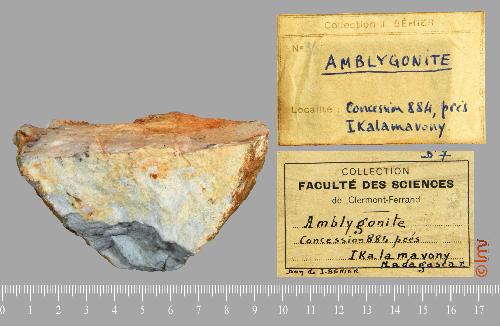 Collection J. BÉHIER
No
AMBLYGONITE
Localité : Concession 884, près
IKalamavony
D'7
COLLECTION
FACULTÉ DES SCIENCES
de Clermont-Ferrand
Amblygonite
Concession 884 près
IKalamavony
Madagascar
Don de J. BÉHIER
©lmy
0 1 2 3 4 5 6 7 8 9 10 11 12 13 14 15 16 17